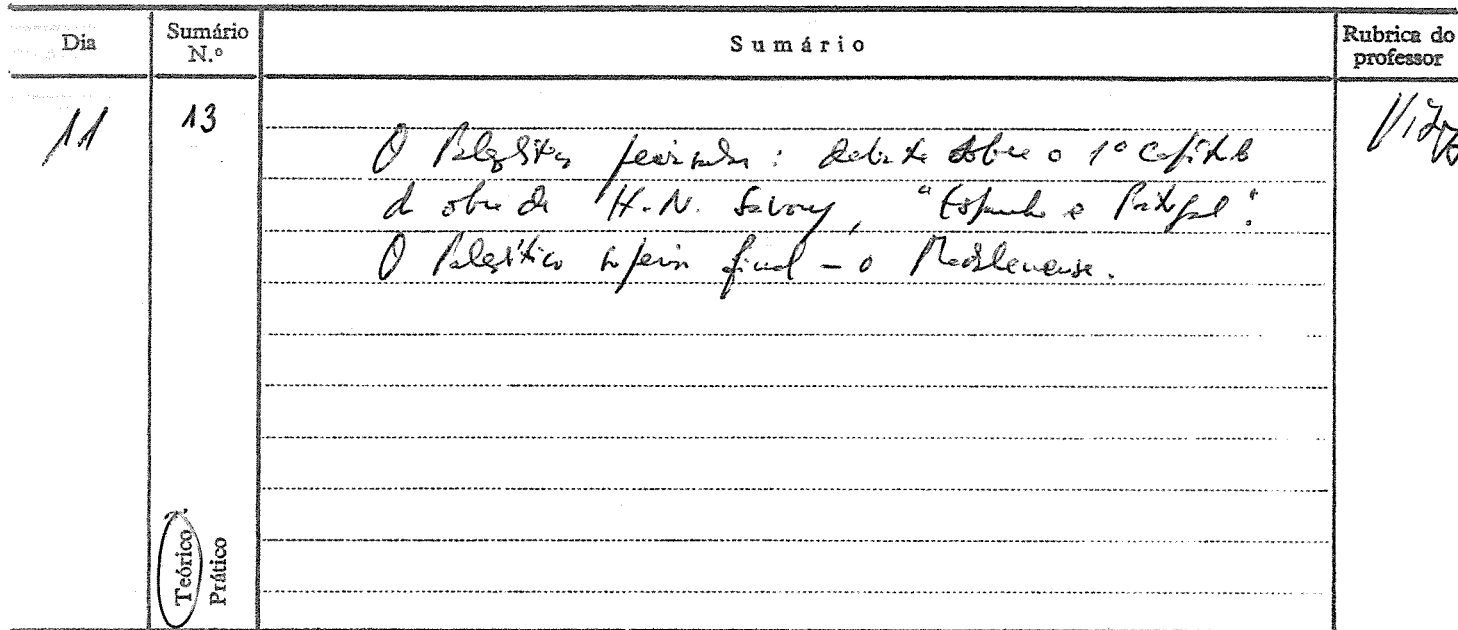 Dia
Sumário N.º
Sumário
Rubrica do professor
11
13
O Paleolítico peninsular: debate sobre o 1º capítulo
da obra de H. N. Savory, "Espanha e Portugal".
O Paleolítico superior final – o Madalenense.
Teórico
Prático